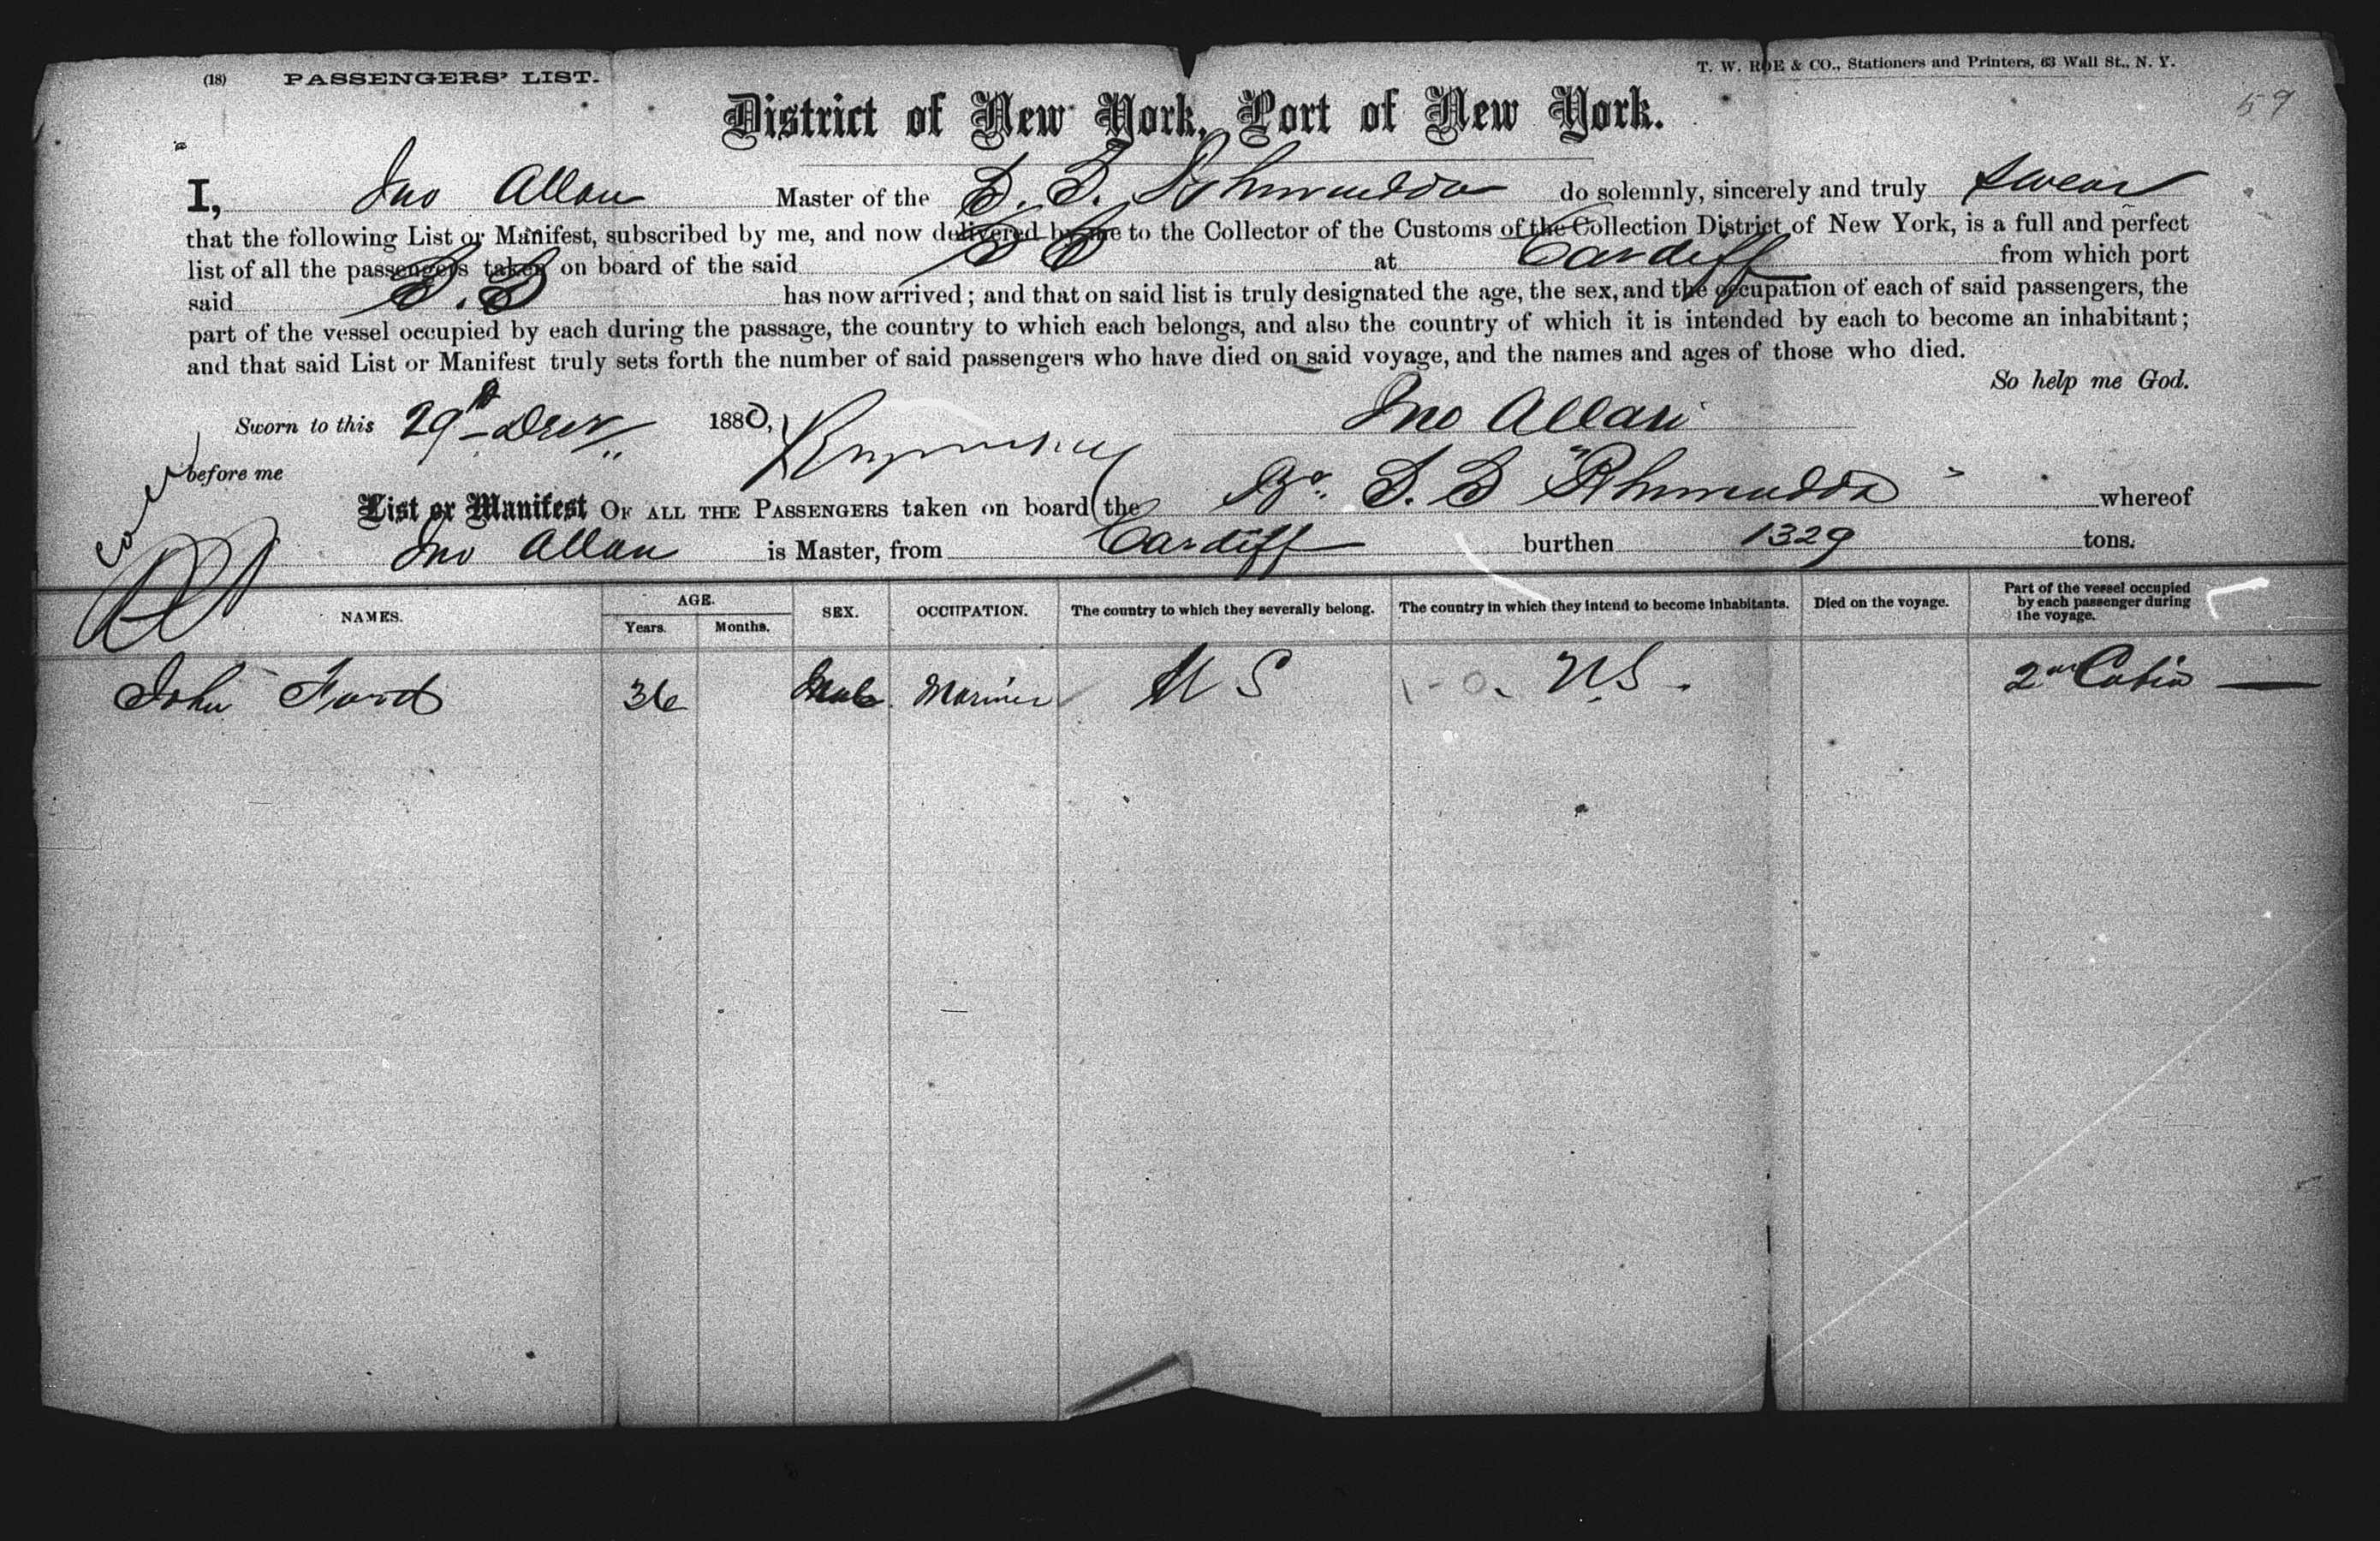 (18) PASSENGERS' LIST.
T. W. ROE & CO., Stationers and Printers, 63 Wall St., N. Y.
59
District of New York, Port of New York.
I, Jno Allan Master of the S. S. Rhiwindda do solemnly, sincerely and truly swear
that the following List or Manifest, subscribed by me, and now delivered by me to the Collector of the Customs of the Collection District of New York, is a full and perfect
list of all the passengers taken on board of the said S S at Cardiff from which port
said S. S has now arrived; and that on said list is truly designated the age, the sex, and the occupation of each of said passengers, the
part of the vessel occupied by each during the passage, the country to which each belongs, and also the country of which it is intended by each to become an inhabitant;
and that said List or Manifest truly sets forth the number of said passengers who have died on said voyage, and the names and ages of those who died.
So help me God.
Sworn to this 29th 1880, Jno Allan
before me
List or Manifest OF ALL THE PASSENGERS taken on board the Br. S. S whereof
Jno Allan is Master, from Cardiff burthen 1329 tons.
NAMES. AGE. Years. Months. SEX. OCCUPATION. The country to which they severally belong. The country in which they intend to become inhabitants. Died on the voyage. Part of the vessel occupied by each passenger during the voyage.
John Ford 36 Male Mariner U S U.S. 2nd Cabin